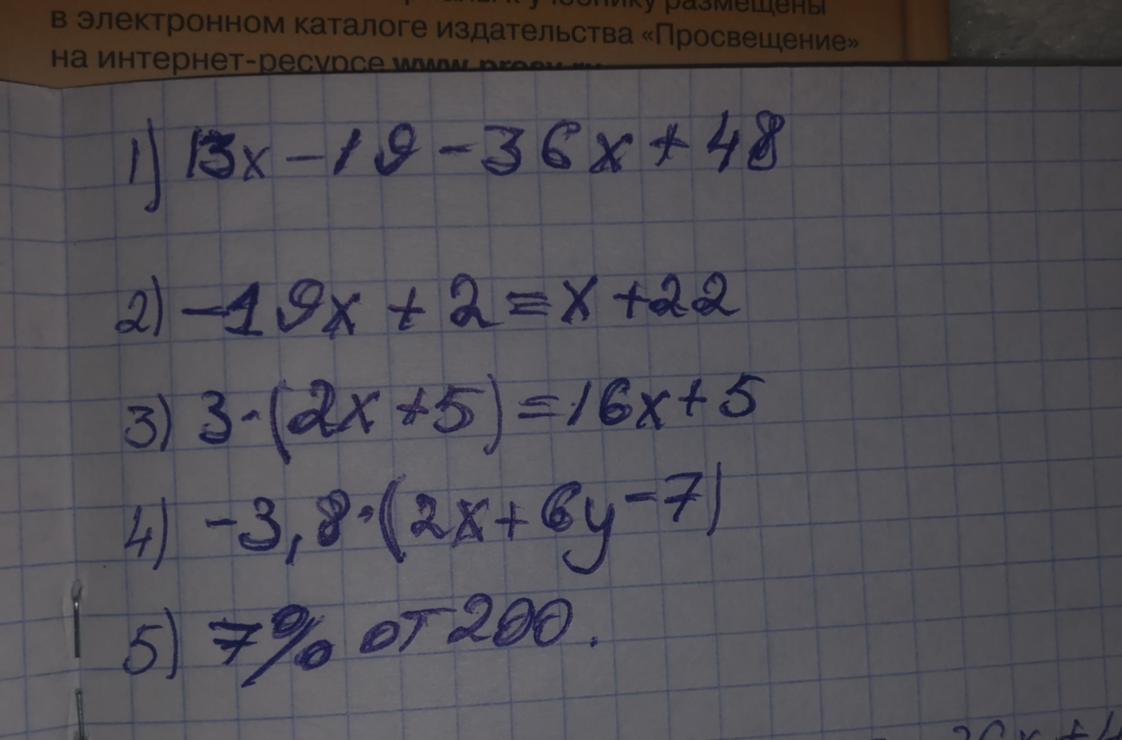 к учебнику размещены
в электронном каталоге издательства «Просвещение»
на интернет-ресурсе www.prosv.ru
1) 13x - 19 - 36x + 48
2) -19x + 2 = x + 22
3) 3·(2x + 5) = 16x + 5
4) -3,8·(2x + 6y - 7)
5) 7% от 200.